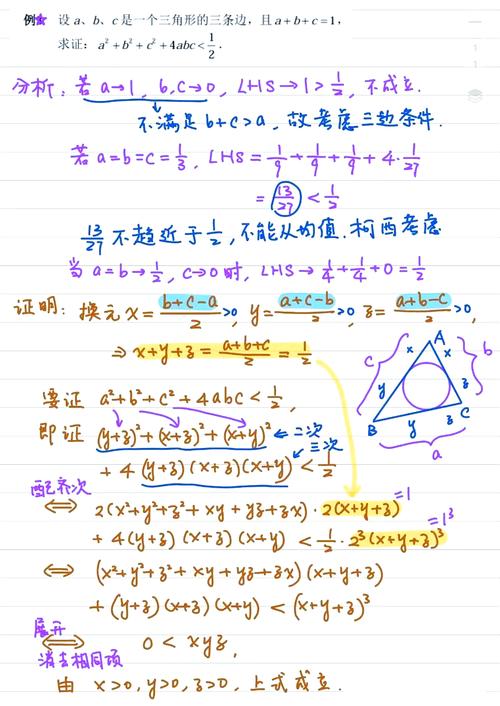 例★ 设 a、b、c 是一个三角形的三条边，且 a+b+c=1，
求证：a²+b²+c²+4abc<1/2.
分析：若 a→1, b,c→0, LHS→1>1/2, 不成立.
不满足 b+c>a, 故考虑三边条件.
若 a=b=c=1/3, LHS=1/9+1/9+1/9+4·1/27
=13/27<1/2
13/27 不趋近于 1/2, 不能从均值.柯西考虑
当 a=b→1/2, c→0 时, LHS→1/4+1/4+0=1/2
证明: 换元 x=(b+c-a)/2>0, y=(a+c-b)/2>0, z=(a+b-c)/2>0,
⇒ x+y+z=(a+b+c)/2=1/2
A
B
C
c
b
a
x
x
y
y
z
z
要证 a²+b²+c²+4abc<1/2,
即证 (y+z)²+(x+z)²+(x+y)² ←二次
+4(y+z)(x+z)(x+y) ←三次 <1/2
配齐次
⇔ 2(x²+y²+z²+xy+yz+zx)·2(x+y+z) =1
+4(y+z)(x+z)(x+y) <1/2·2³(x+y+z)³ =1³
⇔ (x²+y²+z²+xy+yz+zx)(x+y+z)
+(y+z)(x+z)(x+y)<(x+y+z)³
展开
⇔ 0<xyz,
消去相同项
由 x>0, y>0, z>0, 上式成立.